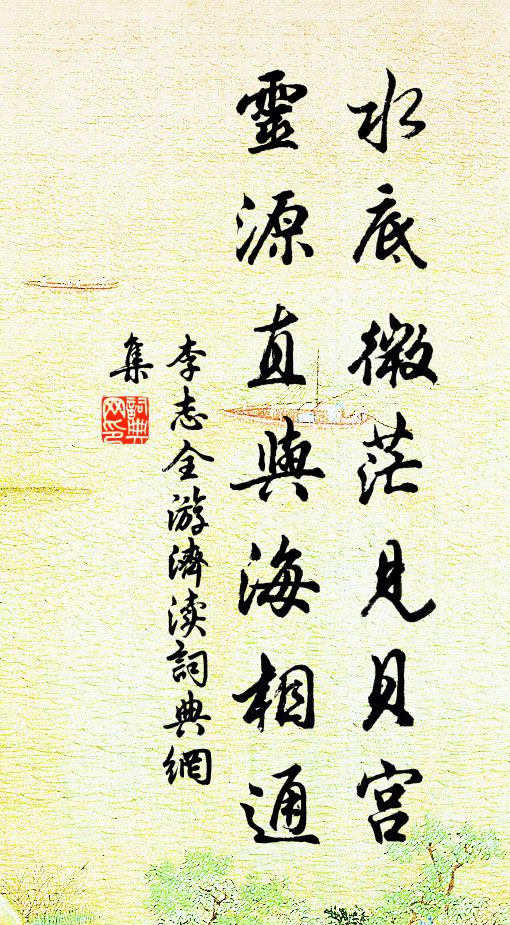 水底微茫見貝宮
靈源直與海相通
李志全游濟瀆詞典網
集
詞典
网印